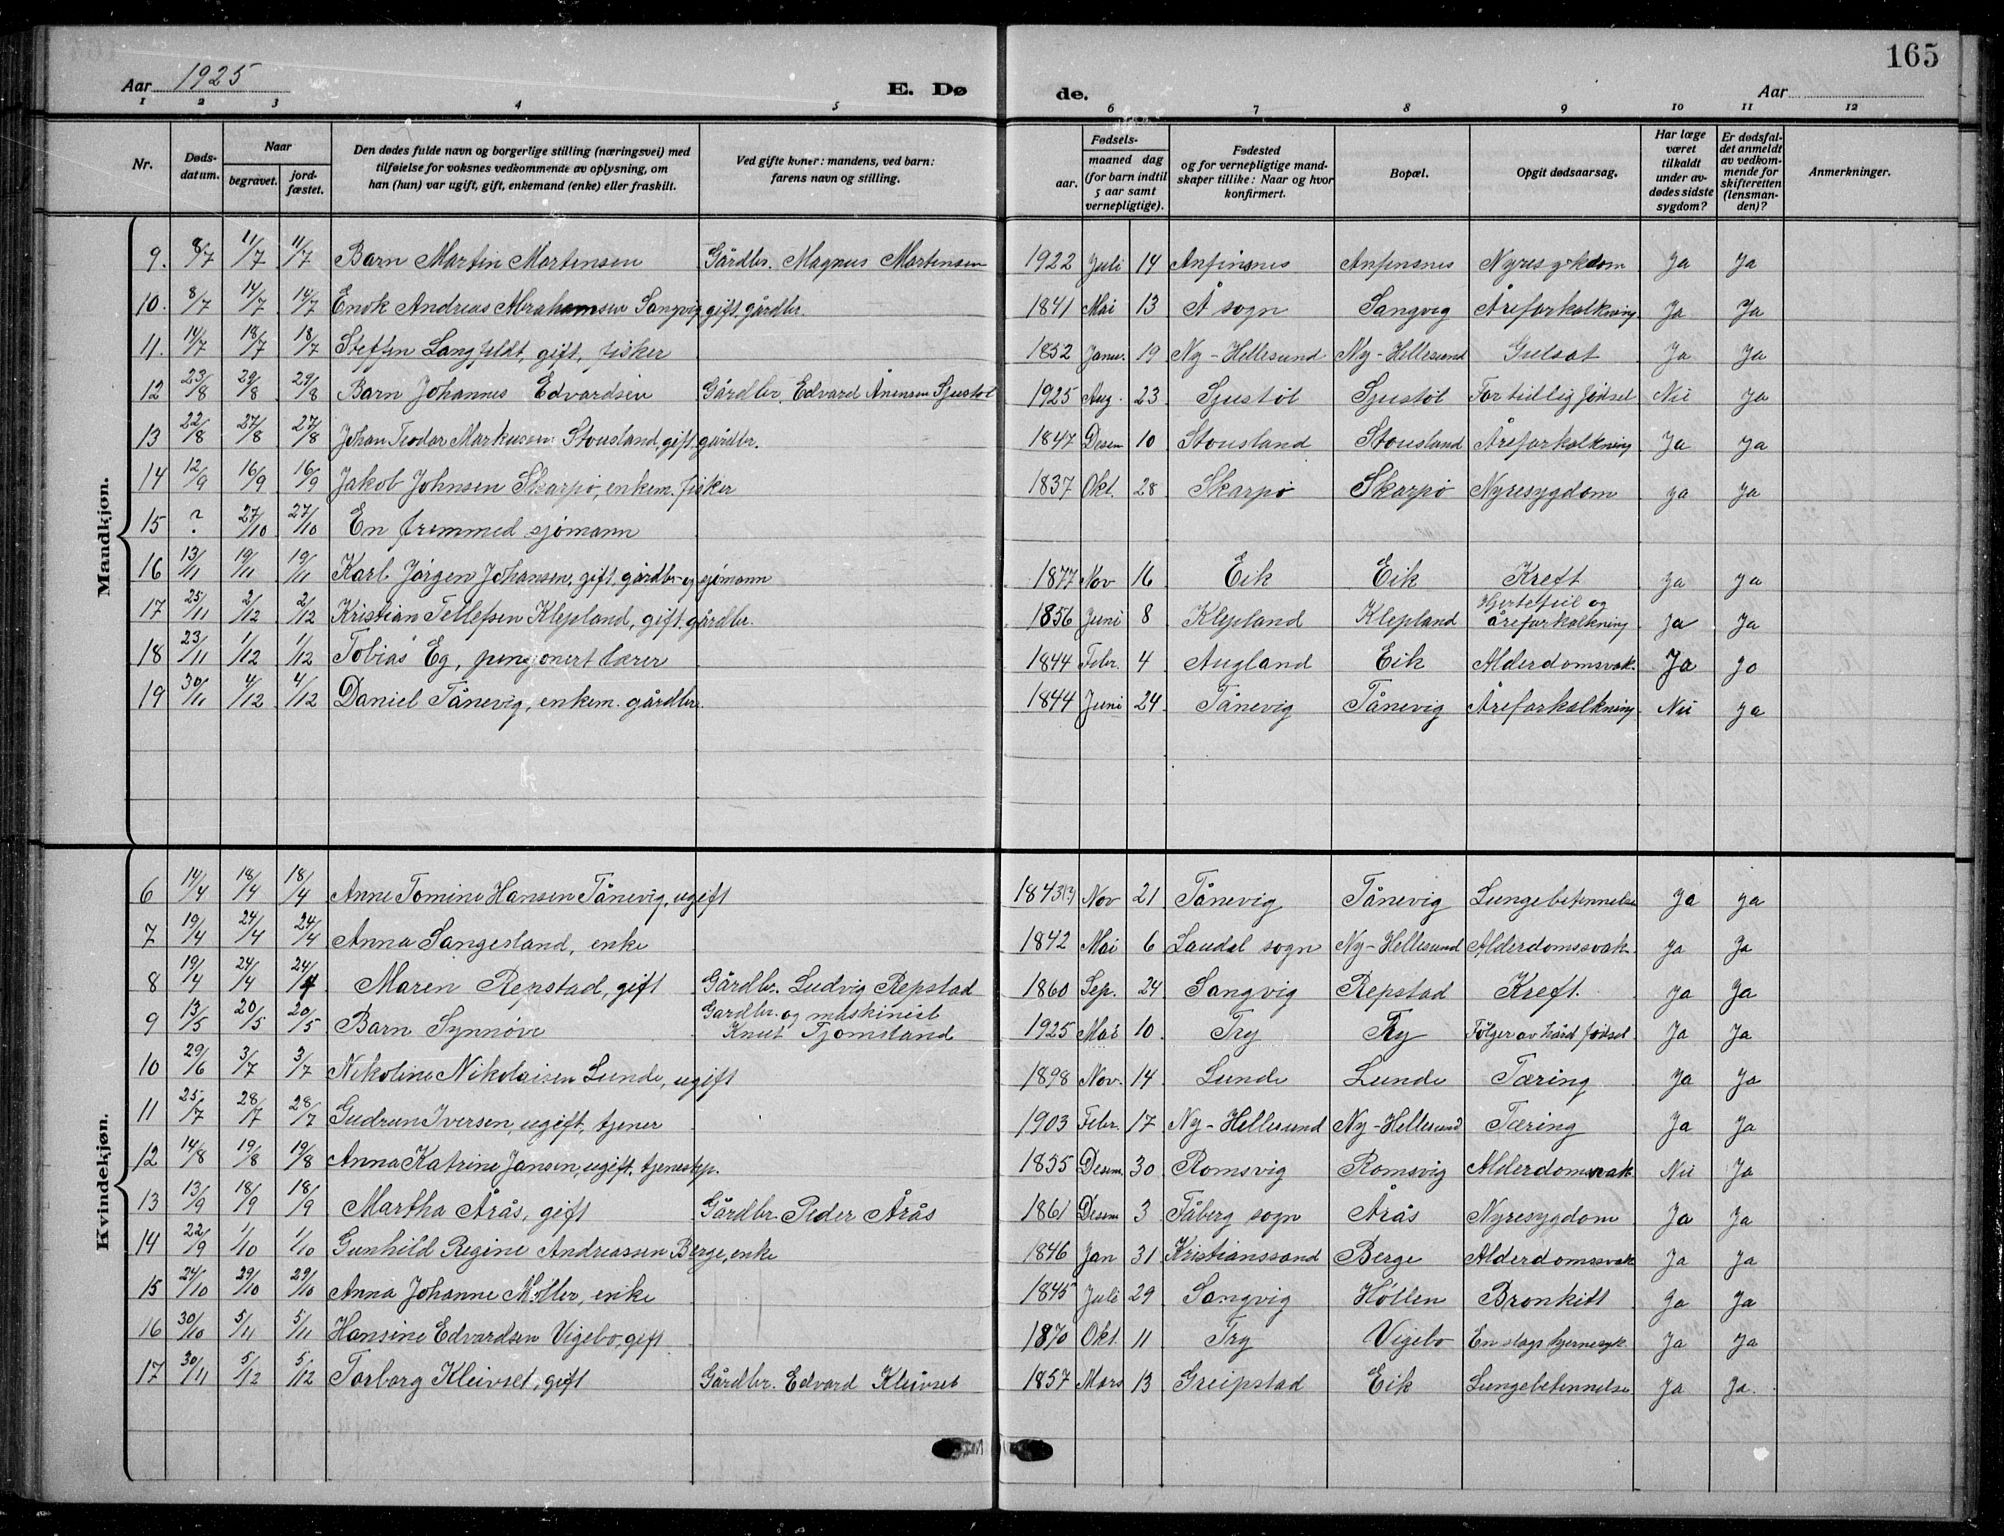 165
Aar 1925 E. Dø de. Aar
1 2 3 4 5 6 7 8 9 10 11 12
Nr. Døds-datum. Naar begravet. jord-fæstet. Den dødes fulde navn og borgerlige stilling (næringsvei) med tilføielse for voksnes vedkommende av oplysning, om han (hun) var ugift, gift, enkemand (enke) eller fraskilt. Ved gifte koner: mandens, ved barn: farens navn og stilling. Fødsels- aar. maaned dag (for barn indtil 5 aar samt vernepligtige). Fødested og for vernepligtige mand-skaper tillike: Naar og hvor konfirmert. Bopæl. Opgit dødsaarsag. Har læge været tilkaldt under av-dødes sidste sygdom? Er dødsfal-det anmeldt av vedkom-mende for skifteretten (lensman-den)? Anmerkninger.
Mandkjøn.
9. 8/7 11/7 11/7 Barn Martin Mortensen Gårdbr. Magnus Mortensen 1922 Juli 14 Anfinsnes Anfinsnes Nyresykdom Ja Ja
10. 8/7 14/7 14/7 Enok Andreas Abrahamsen Sangvig gift gårdbr. 1841 Mai 13 Å sogn Sangvig Åreforkalkning Ja Ja
11. 14/7 18/7 18/7 Steffen Langfeldt, gift, fisker 1852 Janu. 19 Ny-Hellesund Ny-Hellesund Gulsot Ja Ja
12 23/8 29/8 29/8 Barn Johannes Edvardsen Gårdbr. Edvard Ånensen Sjustøl 1925 Aug. 23 Sjustøl Sjustøl For tidlig fødsel Nei Ja
13 22/8 27/8 27/8 Johan Teodor Markussen Stousland, gift gårdbr. 1847 Desem 10 Stousland Stousland Åreforkalkning Ja Ja
14 12/9 16/9 16/9 Jakob Johnsen Skarpø, enkem. fisker 1837 Okt. 28 Skarpø Skarpø Nyresygdom Ja Ja
15 ? 27/10 27/10 En fremmed sjømann
16 13/11 19/11 19/11 Karl Jørgen Johansen, gift, gårdbr. og sjømann 1877 Nov 16 Eik Eik Kreft Ja Ja
17 25/11 2/12 2/12 Kristian Tellefsen Klepland, gift, gårdbr. 1856 Juni 8 Klepland Klepland Hjertefeil og åreforkalkning Ja Ja
18 23/11 1/12 1/12 Tobias Eg, pensjonert lærer 1844 Febr. 4 Augland Eik Alderdomsvak. Ja Ja
19 30/11 4/12 4/12 Daniel Tånevig, enkem. gårdbr. 1844 Juni 24 Tånevig Tånevig Åreforkalkning Nei Ja
Kvindekjøn.
6 14/4 18/4 18/4 Anne Tomine Hansen Tånevig, ugift 1843(?) Nov 21 Tånevig Tånevig Lungebetennelse Ja Ja
7 19/4 24/4 24/4 Anna Sangesland, enke 1842 Mai 6 Laudal sogn Ny-Hellesund Alderdomssvak. Ja Ja
8 19/4 24/4 24/4 Maren Repstad, gift Gårdbr. Ludvig Repstad 1860 Sep. 24 Sangvig Repstad Kreft. Ja Ja
9 13/5 20/5 20/5 Barn Synnøve Gårdbr. og maskinist Knut Tjomsland 1925 Mai 10 Try Try Følger av hård fødsel Ja Ja
10 29/6 3/7 3/7 Nikoline Nikolaisen Lunde, ugift 1898 Nov. 14 Lunde Lunde Tæring Ja Ja
11 25/7 28/7 28/7 Gudrun Iversen, ugift, tjener 1903 Febr. 17 Ny-Hellesund Ny-Hellesund Tæring Ja Ja
12 14/8 19/8 19/8 Anna Katrine Jansen, ugift, tjenestep. 1855 Desem 30 Romsvig Romsvig Alderdomsvak Nei Ja
13 13/9 18/9 18/9 Martha Årås, gift Gårdbr. Peder Årås 1861 Desem 3 Fåberg sogn Årås Nyresygdom Ja Ja
14 22/9 1/10 1/10 Gunhild Regine Andreassen Berge, enke 1846 Jan 31 Kristianssand Berge Alderdomssvak Ja Ja
15 24/10 29/10 29/10 Anna Johanne Møller, enke 1845 Juli 29 Sangvig Høllen Bronkitt Ja Ja
16 30/10 5/11 5/11 Hansine Edvardsen Vigebo, gift 1870 Okt. 11 Try Vigebo En slags hjernesyk. Ja Ja
17 30/11 5/12 5/12 Torborg Kleivset, gift Gårdbr. Edvard Kleivset 1857 Mars 13 Greipstad Eik Lungebetennelse Ja Ja.